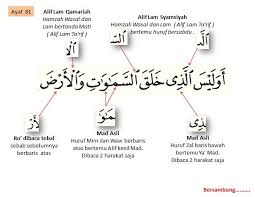 Ayat 81
Alif Lam Qamariah
Hamzah Wasal dan
Lam bertanda Mati
( Alif Lam Ta'rif )
Alif Lam Syamsiyah
Hamzah Wasal dan Lam ( Alif Lam Ta'rif )
bertemu huruf bersabdu .
أَوَلَيْسَ الَّذِي خَلَقَ السَّمَٰوَٰتِ وَالْأَرْضَ
ذِي
Ro' dibaca tebal
sebab sebelumnya
berbaris atas
Mad Asli
Huruf Mim dan Waw berbaris
atas bertemu Alif kecil Mad.
Dibaca 2 harakat saja
Mad Asli
Huruf Zal baris bawah
bertemu Ya' Mad.
Dibaca 2 harakat saja
Bersambung..........